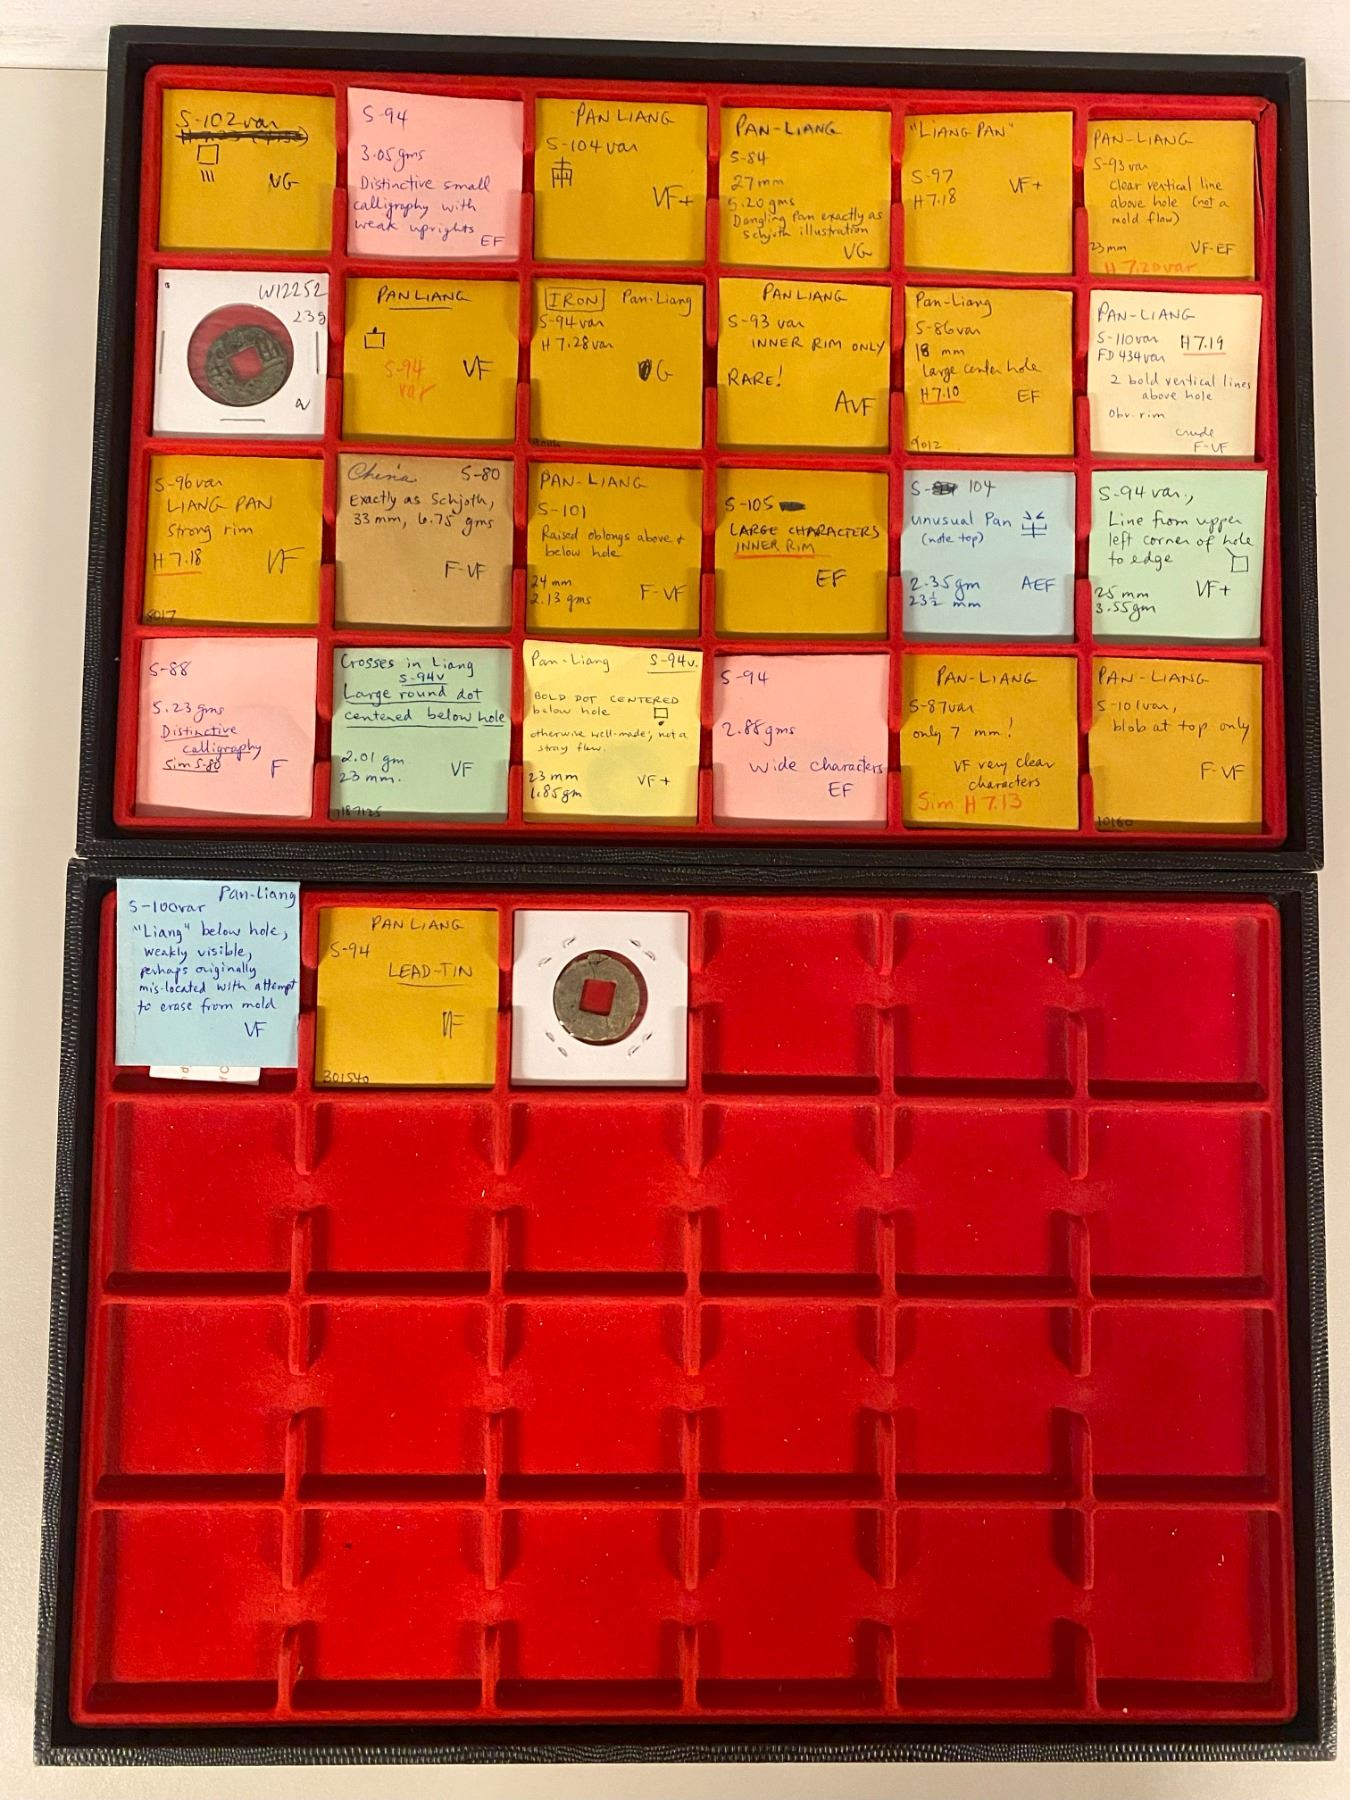 S-102 var
VG
S-94
3.05 gms
Distinctive small
calligraphy with
weak uprights
EF
PAN LIANG
S-104 var
VF+
PAN-LIANG
S-84
27 mm
5.20 gms
Dangling Pan exactly as
Schjoth illustration
VG
"LIANG PAN"
S-97
H 7.18
VF+
PAN-LIANG
S-93 var
clear vertical line
above hole (not a
mold flaw)
23 mm
VF-EF
H 7.20 var
W12252
23g
PAN LIANG
S-94
var
VF
IRON
Pan-Liang
S-94 var
H 7.28 var
G
PAN LIANG
S-93 var
INNER RIM ONLY
RARE!
AVF
Pan-Liang
S-86 var
18 mm
large center hole
H 7.10
EF
9012
PAN-LIANG
S-110 var
H 7.19
FD 434 var
2 bold vertical lines
above hole
Obv. rim
crude
F-VF
S-96 var
LIANG PAN
Strong rim
H 7.18
VF
8017
China
S-80
Exactly as Schjoth,
33 mm, 6.75 gms
F-VF
PAN-LIANG
S-101
Raised oblongs above +
below hole
24 mm
2.13 gms
F-VF
S-105
LARGE CHARACTERS
INNER RIM
EF
S- 104
unusual Pan
(note top)
2.35 gm
23½ mm
AEF
S-94 var.,
Line from upper
left corner of hole
to edge
25 mm
3.55 gm
VF+
S-88
5.23 gms
Distinctive
calligraphy
Sim S-80
F
Crosses in Liang
S-94v
Large round dot
centered below hole
2.01 gm
23 mm.
VF
Pan-Liang
S-94v.
BOLD DOT CENTERED
below hole
otherwise well-made; not a
stray flaw.
23 mm
1.85 gm
VF+
S-94
2.88 gms
Wide characters
EF
PAN-LIANG
S-87 var
only 7 mm!
VF very clear
characters
Sim H 7.13
PAN-LIANG
S-101 var,
blob at top only
F-VF
10160
Pan-Liang
S-100 var
"Liang" below hole,
weakly visible,
perhaps originally
mis-located with attempt
to erase from mold
VF
PAN LIANG
S-94
LEAD-TIN
VF
301540